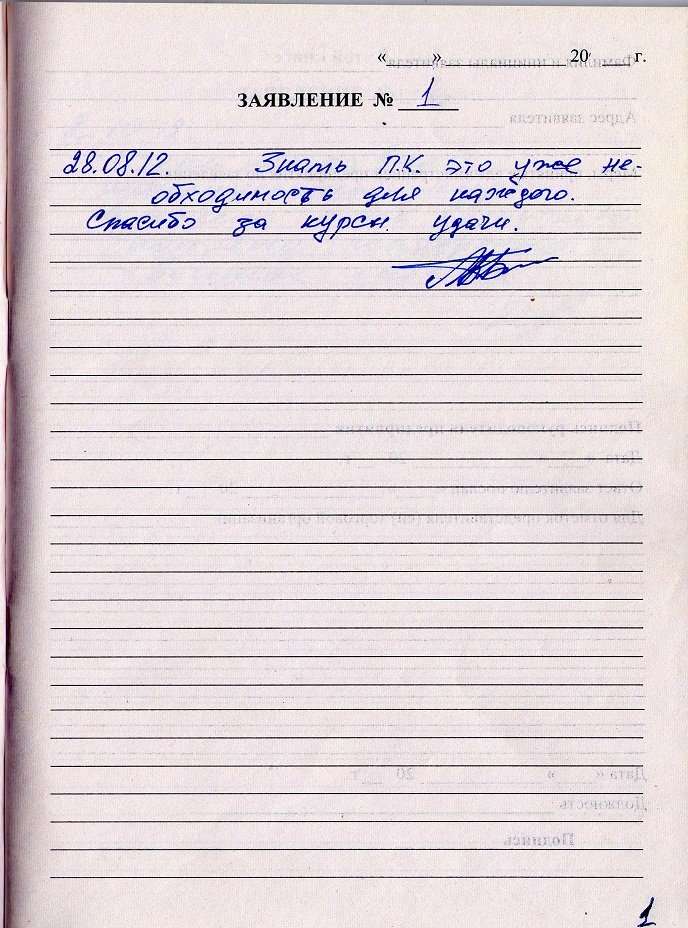 « » 20 г.
ЗАЯВЛЕНИЕ № 1
28.08.12. Знать П.К. это уже не-
обходимость для каждого.
Спасибо за курсы. удачи.
1